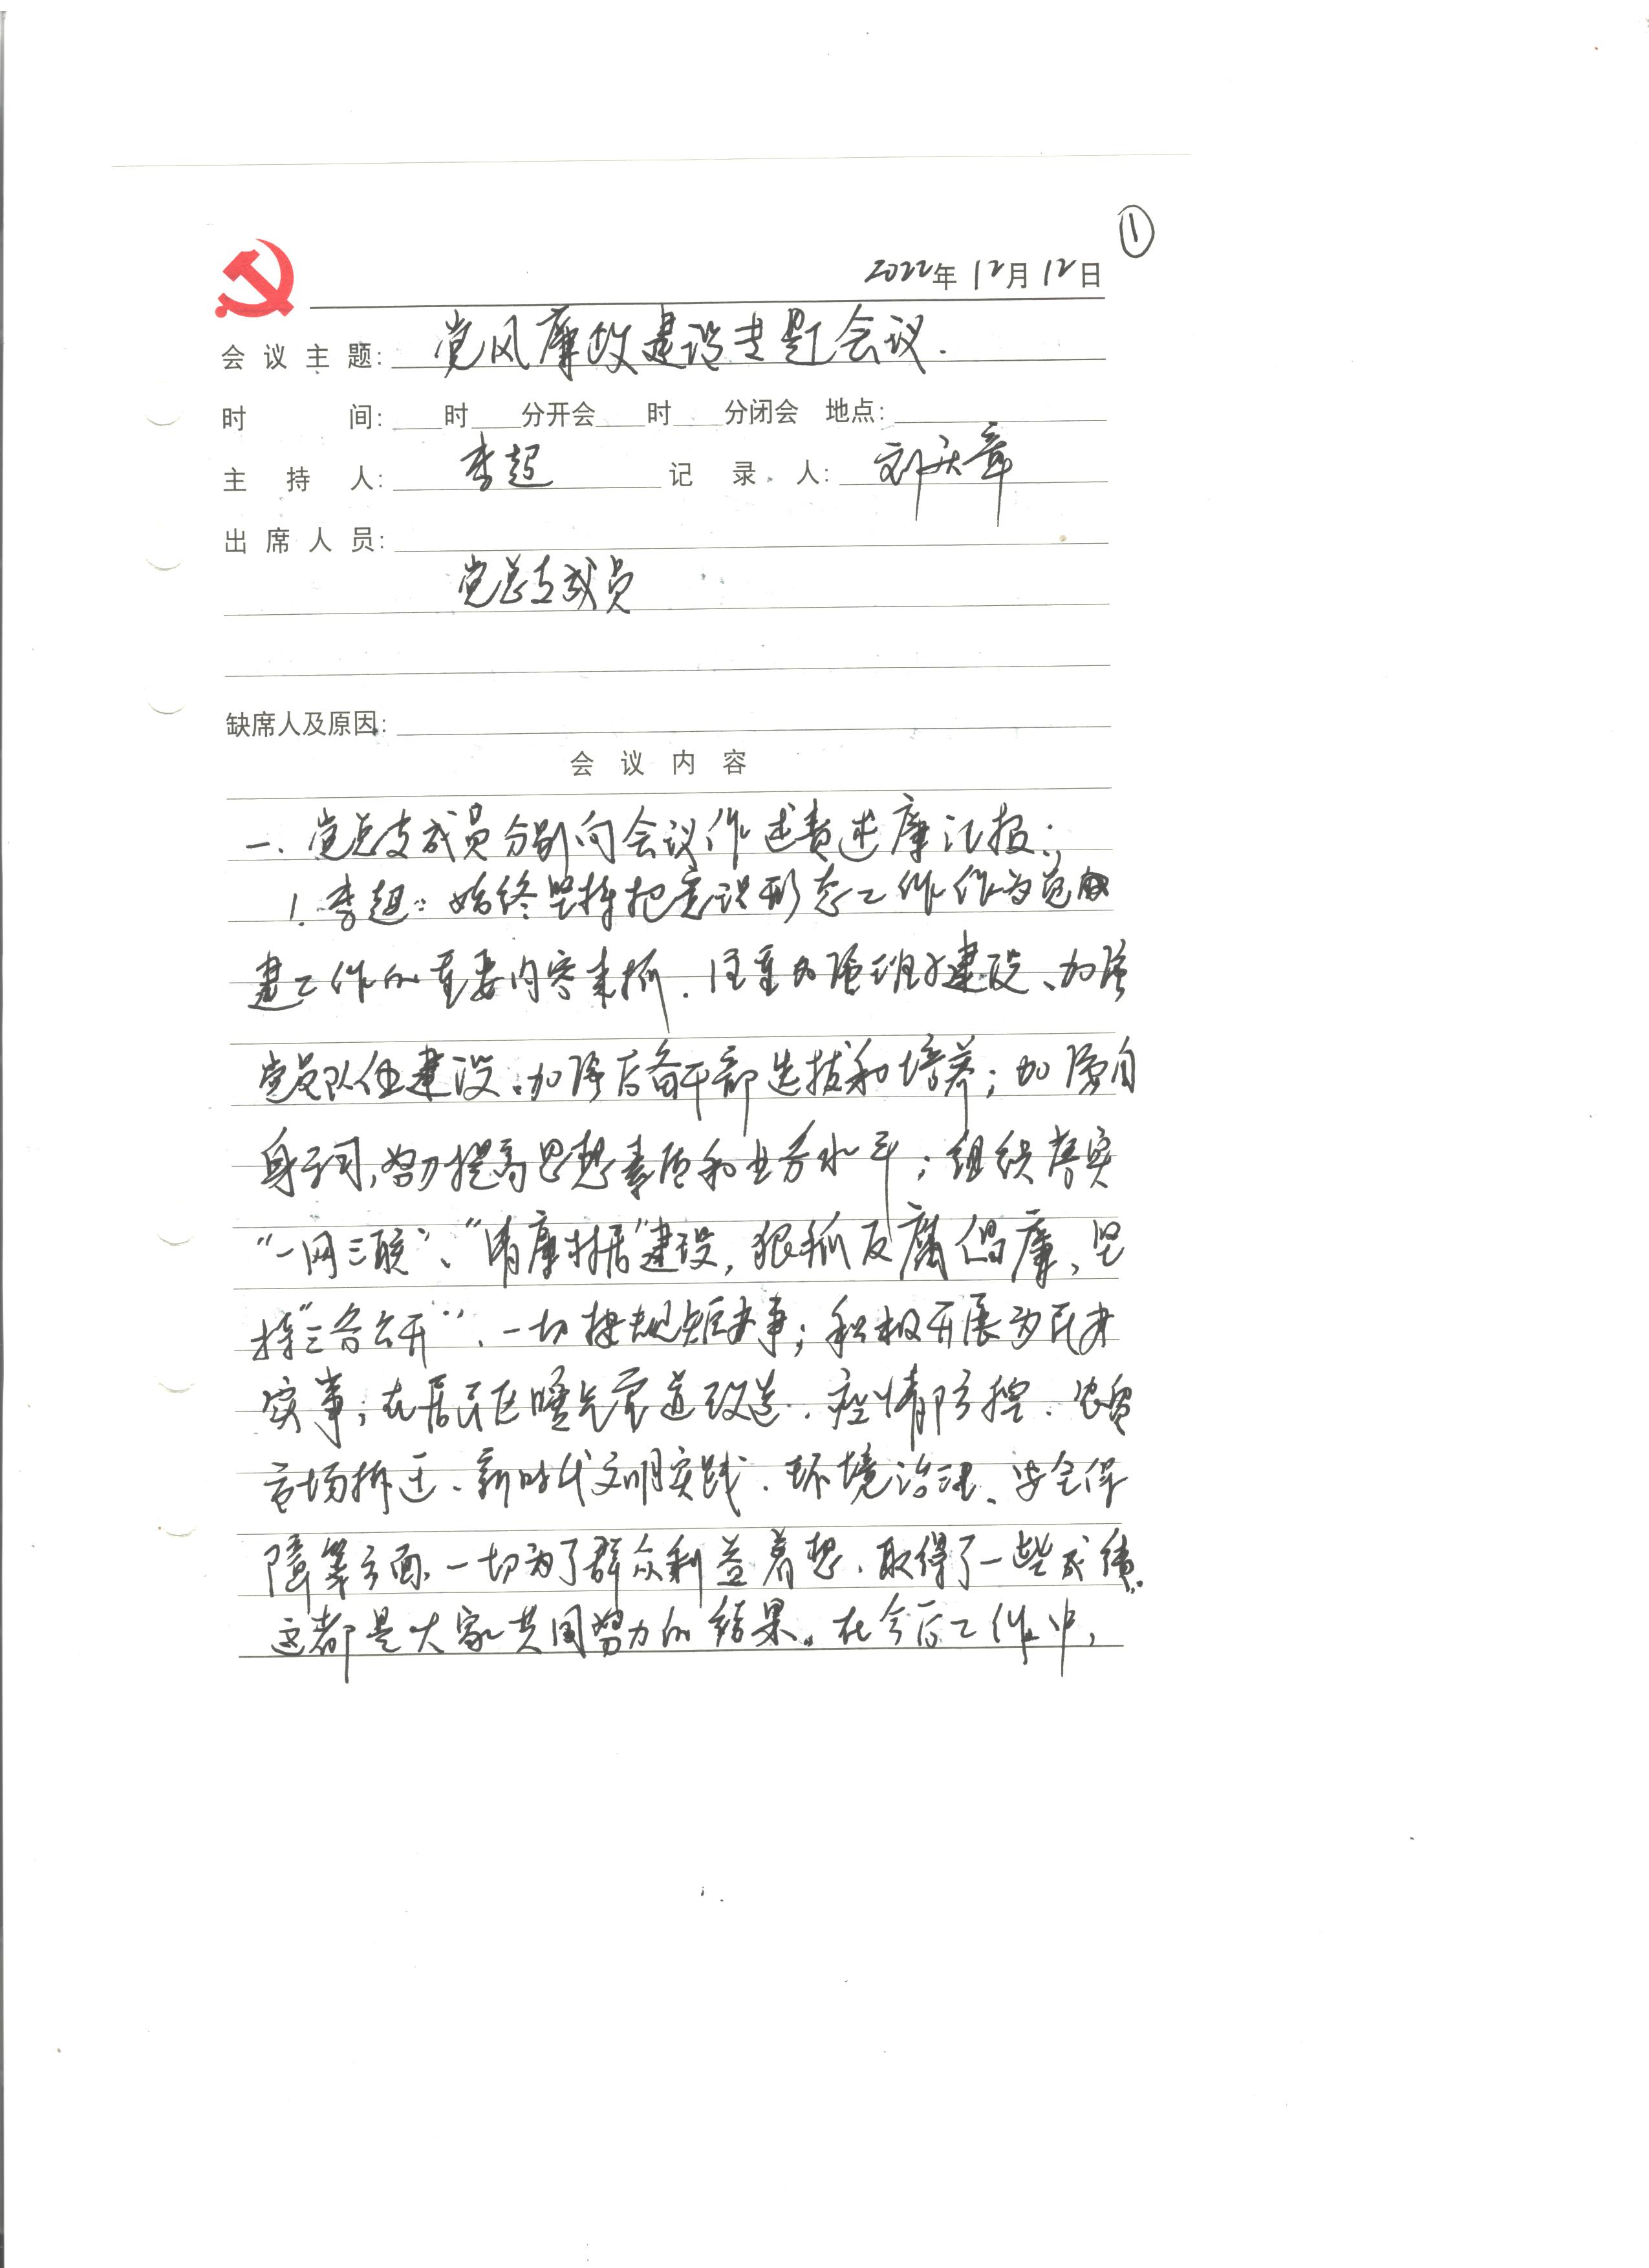 ①
2022年12月12日
会议主题: 党风廉政建设专题会议.
时间: 时 分开会 时 分闭会 地点:
主持人: 李超 记录人: 刘庆章
出席人员:
党总支成员
缺席人及原因:
会议内容
一、党总支成员分别向会议作述责述廉汇报:
1.李超: 始终坚持把意识形态工作作为党
建工作的重要内容来抓.注重加强班子建设、加强
党员队伍建设、加强后备干部选拔和培养;加强自
身学习,努力提高思想素质和业务水平;组织落实
“一网三联”、“清廉村居”建设,狠抓反腐倡廉、坚
持“三务公开”、一切按规矩办事;积极开展为民办
实事;在居民区暖气管道改造、疫情防控、农贸
市场拆迁、新时代文明实践、环境治理、安全保
障等方面、一切为了群众利益着想.取得了一些成绩.
这都是大家共同努力的结果。在今后工作中,